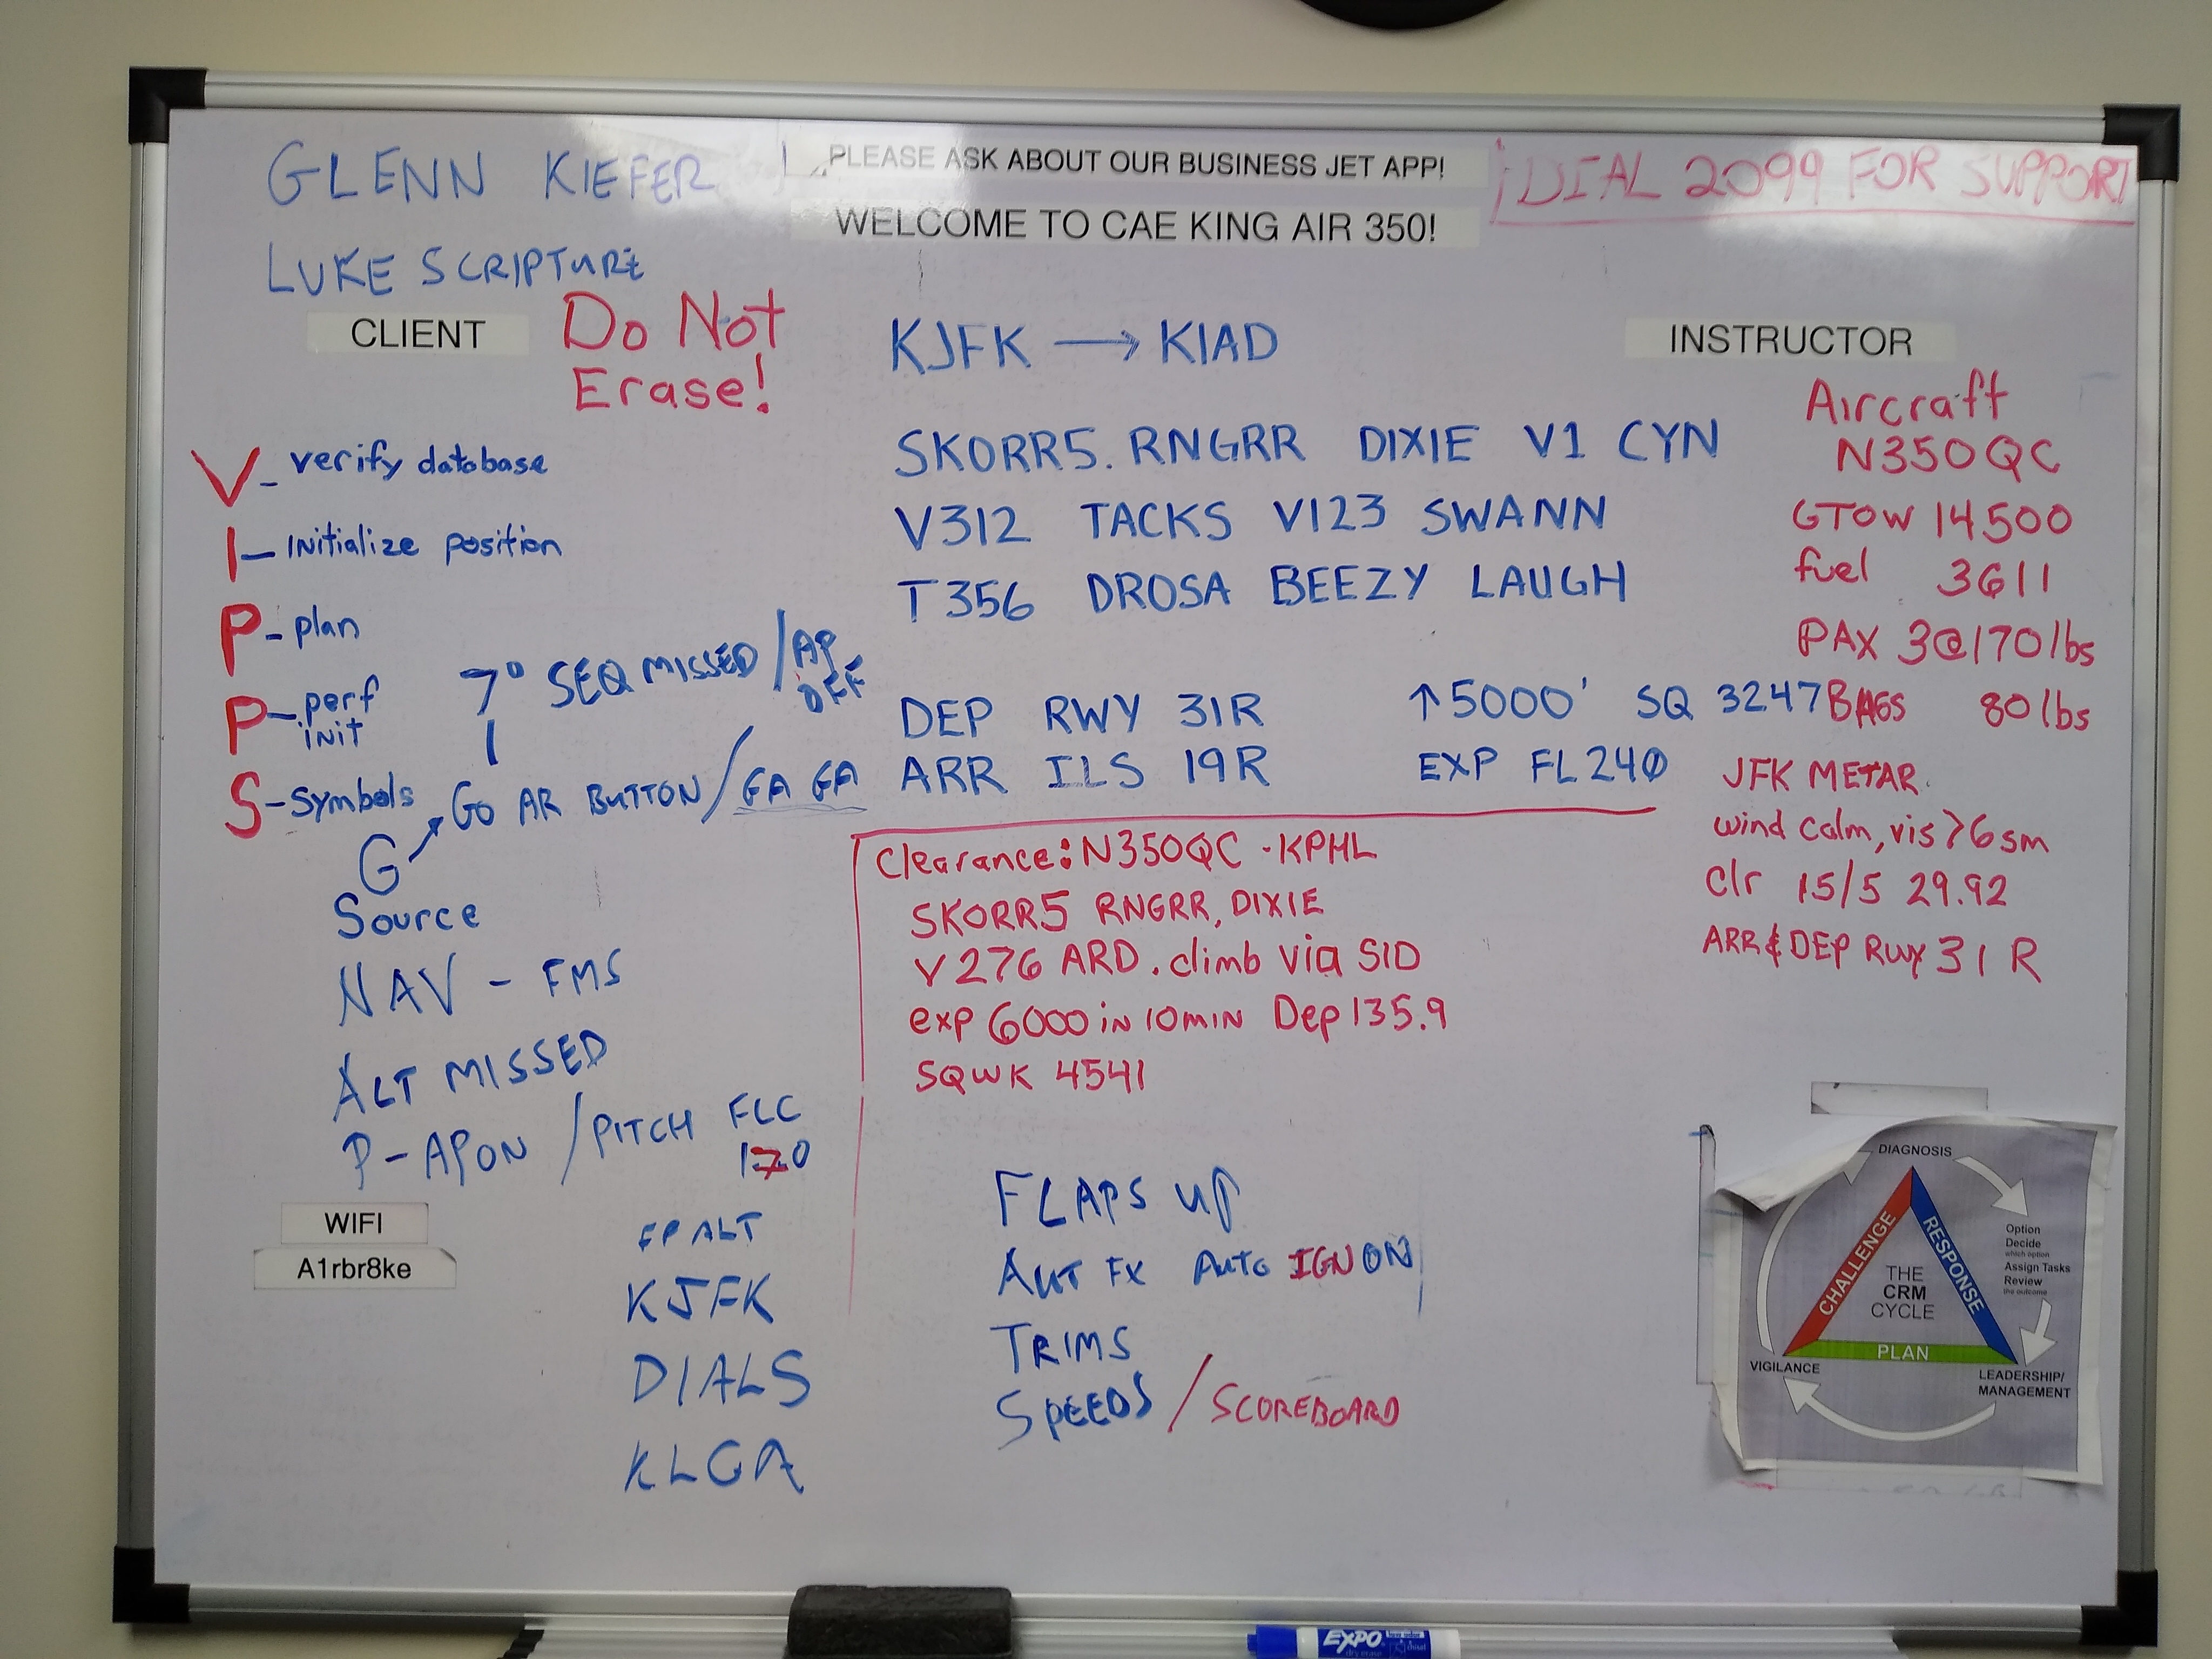 GLENN KIEFER
PLEASE ASK ABOUT OUR BUSINESS JET APP!
DIAL 2099 FOR SUPPORT
WELCOME TO CAE KING AIR 350!
LUKE SCRIPTURE
CLIENT
Do Not
Erase!
KJFK → KIAD
INSTRUCTOR
SKORR5. RNGRR DIXIE V1 CYN
V312 TACKS V123 SWANN
T356 DROSA BEEZY LAUGH
DEP RWY 31R ↑5000' SQ 3247
ARR ILS 19R EXP FL240
Aircraft
N350QC
GTOW 14500
fuel 3611
PAX 3@170lbs
BAGS 80lbs
JFK METAR.
wind calm, vis >6sm
Clr 15/5 29.92
ARR & DEP Rwy 31 R
V - verify database
I - Initialize position
P - plan
P - perf
init
S - Symbols
7° SEQ MISSED / AP
OFF
GO AR BUTTON / GA GA
G
Source
NAV - FMS
ALT MISSED
P - AP ON / PITCH FLC
170
Clearance: N350QC - KPHL
SKORR5 RNGRR, DIXIE
V276 ARD. climb via SID
exp 6000 in 10min Dep 135.9
SQWK 4541
WIFI
A1rbr8ke
KJFK
DIALS
KLGA
FLAPS UP
AUT FX AUTO IGN ON
TRIMS
SPEEDS / SCOREBOARD
DIAGNOSIS
CHALLENGE
RESPONSE
THE
CRM
CYCLE
PLAN
Option
Decide
which option
Assign Tasks
Review
the outcome
VIGILANCE
LEADERSHIP/
MANAGEMENT
EXPO